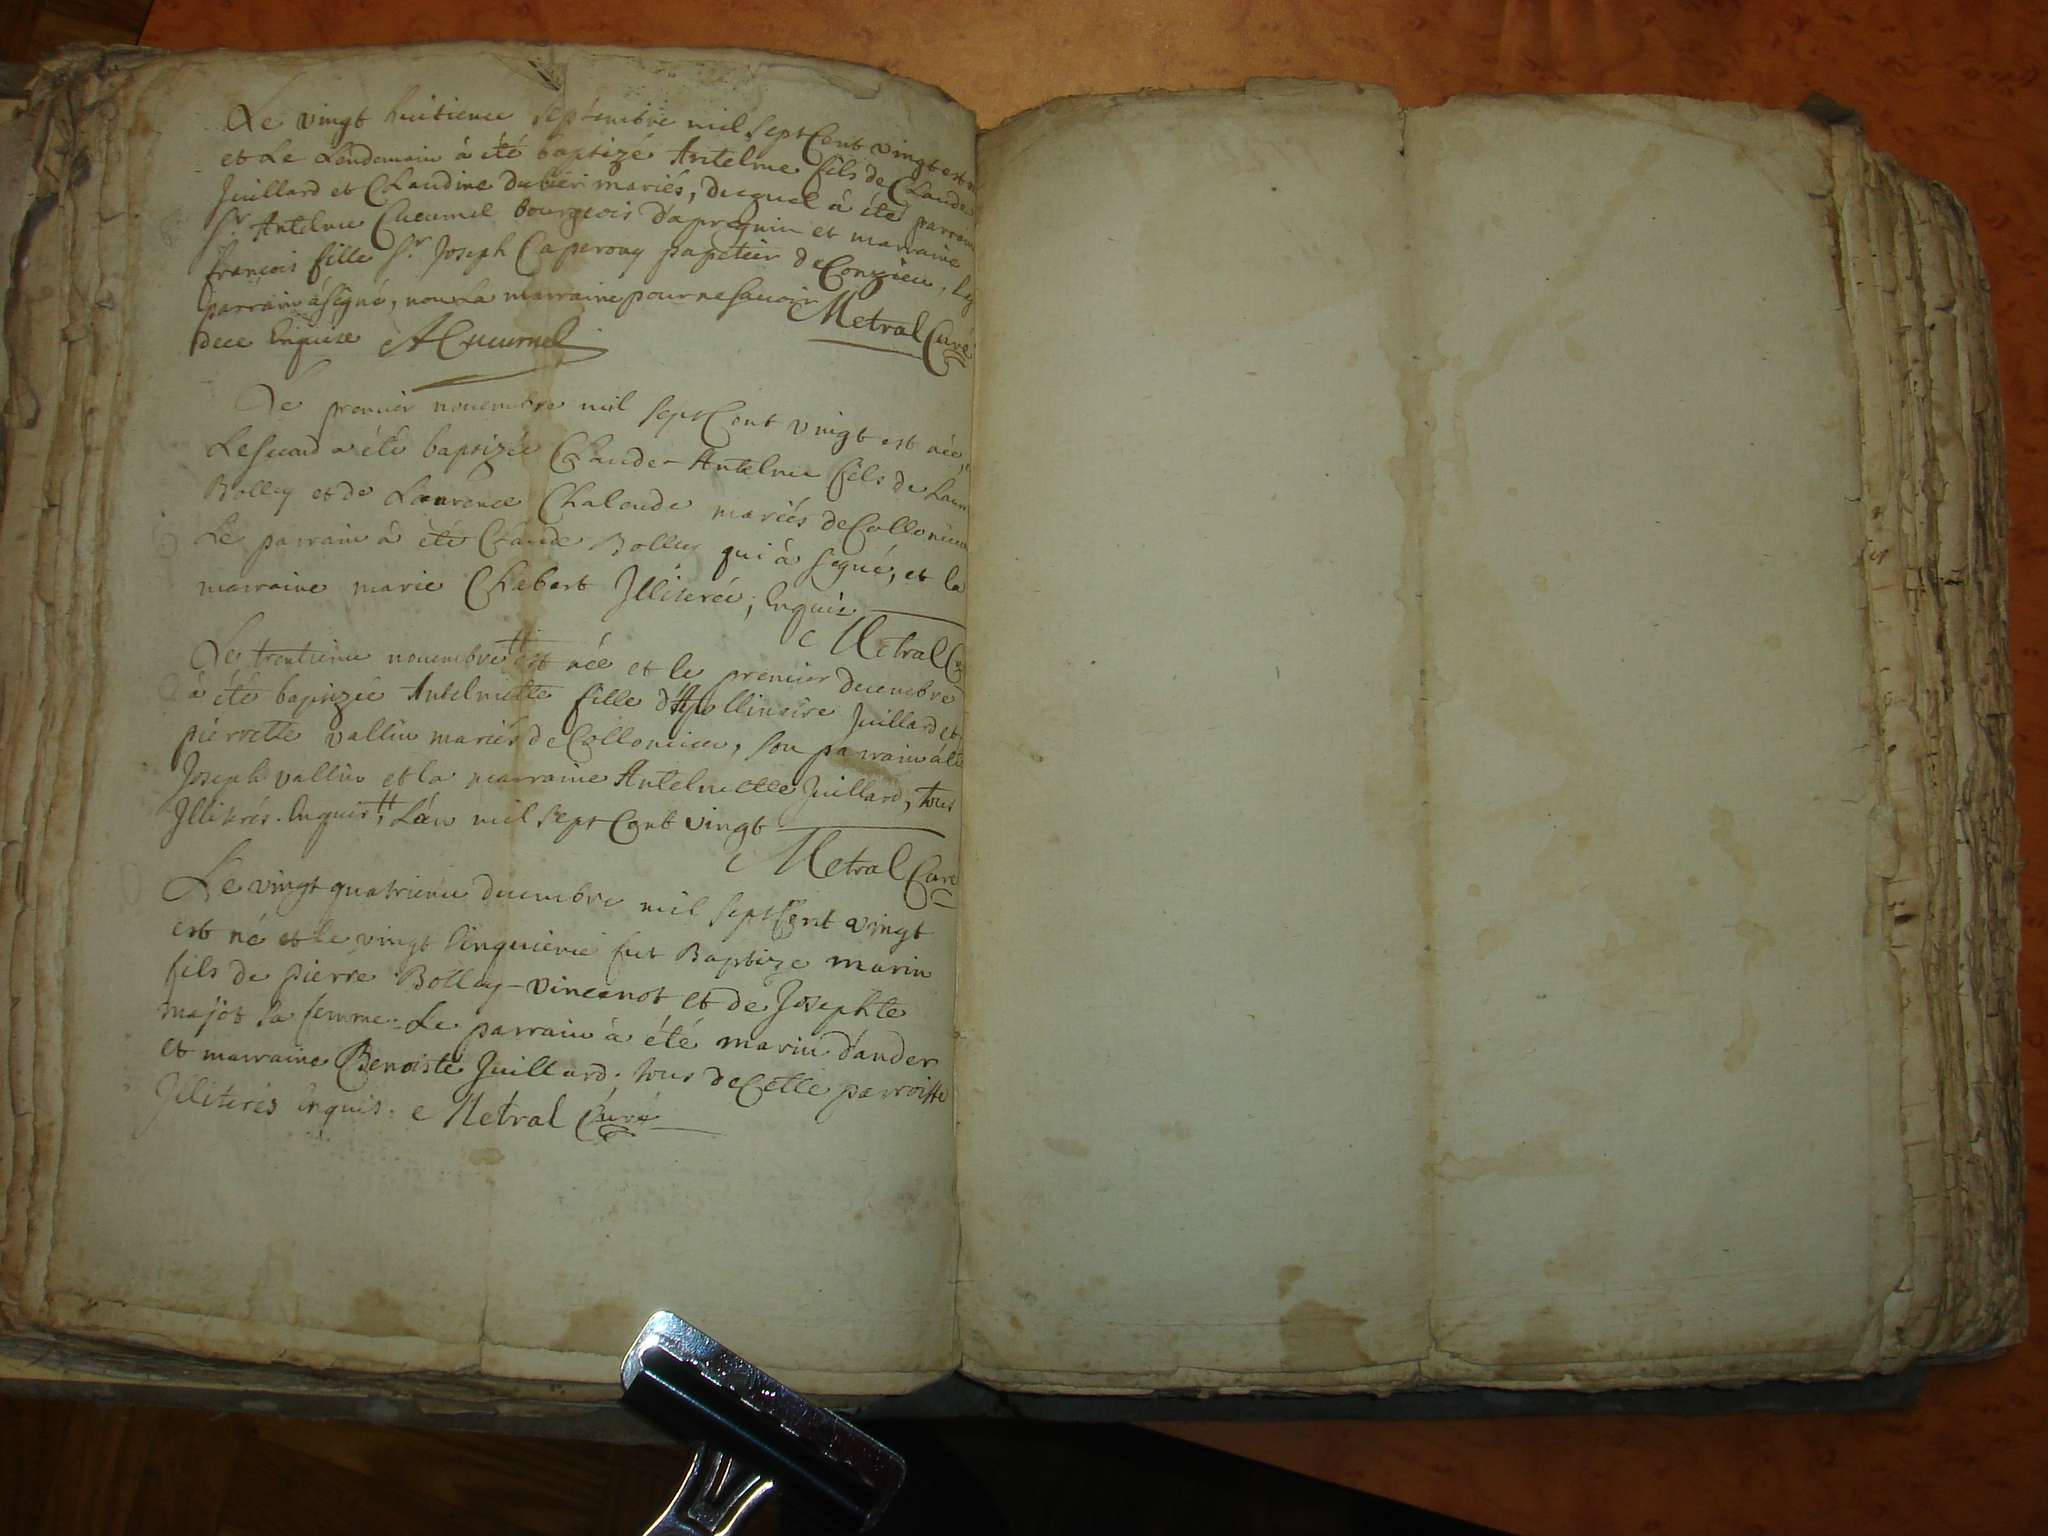 Le vingt huitieme septembre mil sept Cent vingt est
et Le Lendemain à été baptizé Antelme fils de Claude
Juillard et Claudine Dubier mariés, duquel à été parrain
Sr. Antelme Cucurnel bourgeois et marraine
françois fille Sr. Joseph Caperony papetier de Conzieu,
parrain à signé, non La marraine pour ne savoir
dece Enquise ACucurnel Metral Curé
Le premier novembre mil sept Cent vingt est née,
Le second a été baptizée Claude-Antelme fils de
Bolley et de Laurence Chalende mariés de Collomieu
Le parrain à été Claude Bolley qui à signé, et la
marraine marie Chebert Illiterée; Enquis
Metral
Le trentieme novembre est née et le premier decembre
à été baptizée Antelmette fille d'Apollinaire Juillard et
pierrette vallin mariés de Collomieu, son parrain à été
Joseph vallin et la marraine Antelmette Juillard, tous
Illiterés. Enquis, L'an mil sept Cent vingt
Metral Curé
Le vingt quatrieme decembre mil sept Cent vingt
est né et le vingt Cinquieme fut Baptize marin
fils de pierre Bolley-vincenot et de Josephte
majot sa femme. Le parrain à été marin d'ander
et marraine Benoiste Juillard. tous de Cette parroisse
Illiteres Enquis. Metral Curé